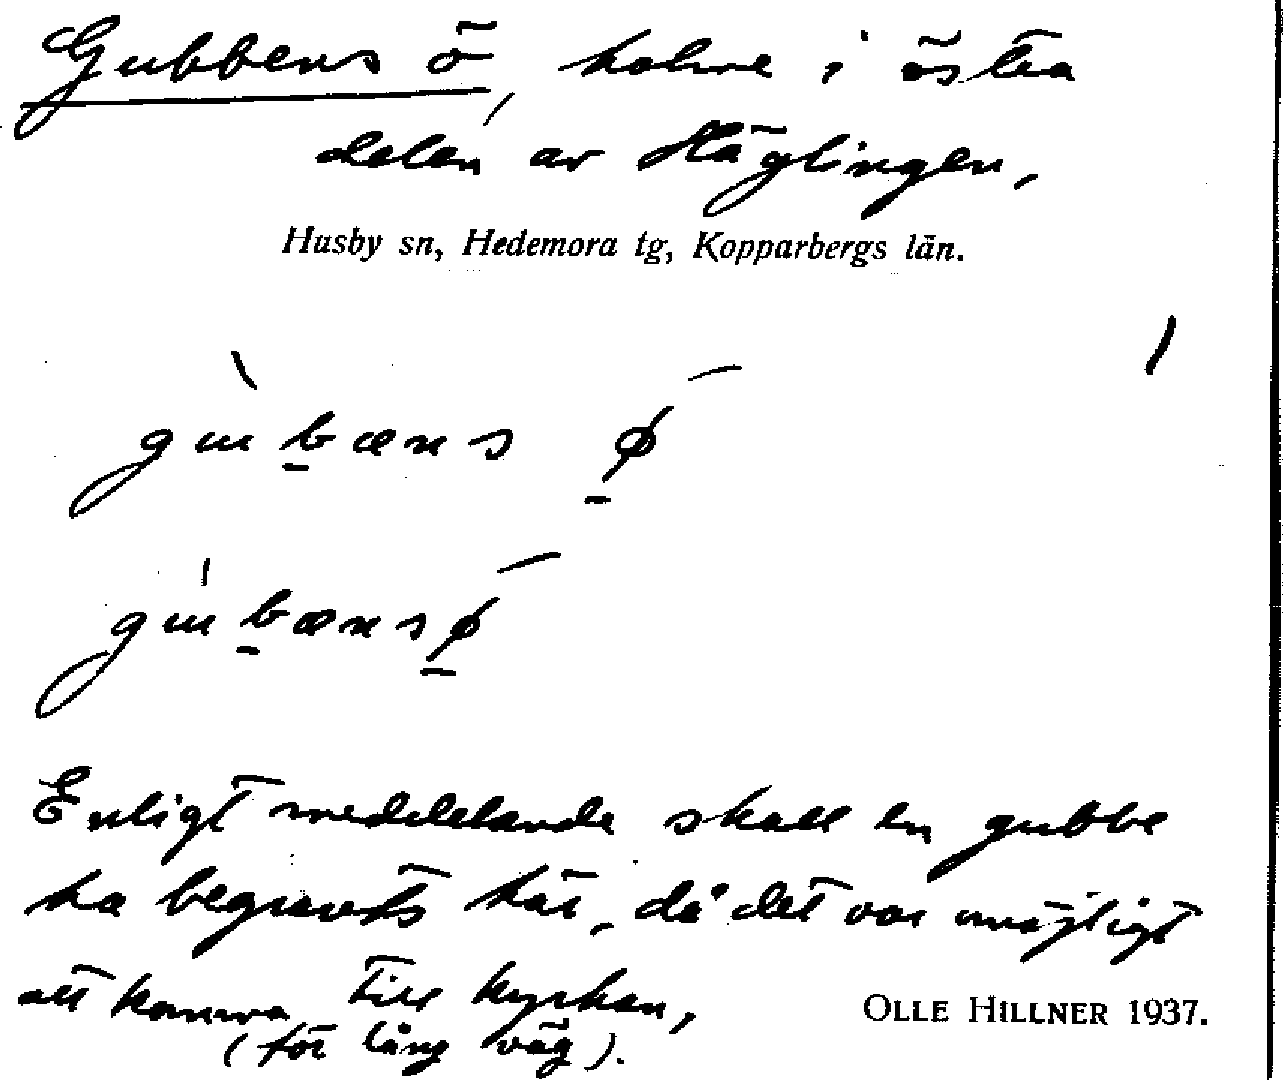 Gubbens ö, holme i östra
delen av Häglingen,
Husby sn, Hedemora tg, Kopparbergs län.
gubæns ø
gubænsø
Enligt meddelande skall en gubbe
ha begravts här, då det var omöjligt
att komma till kyrkan,
(för lång väg).
OLLE HILLNER 1937.